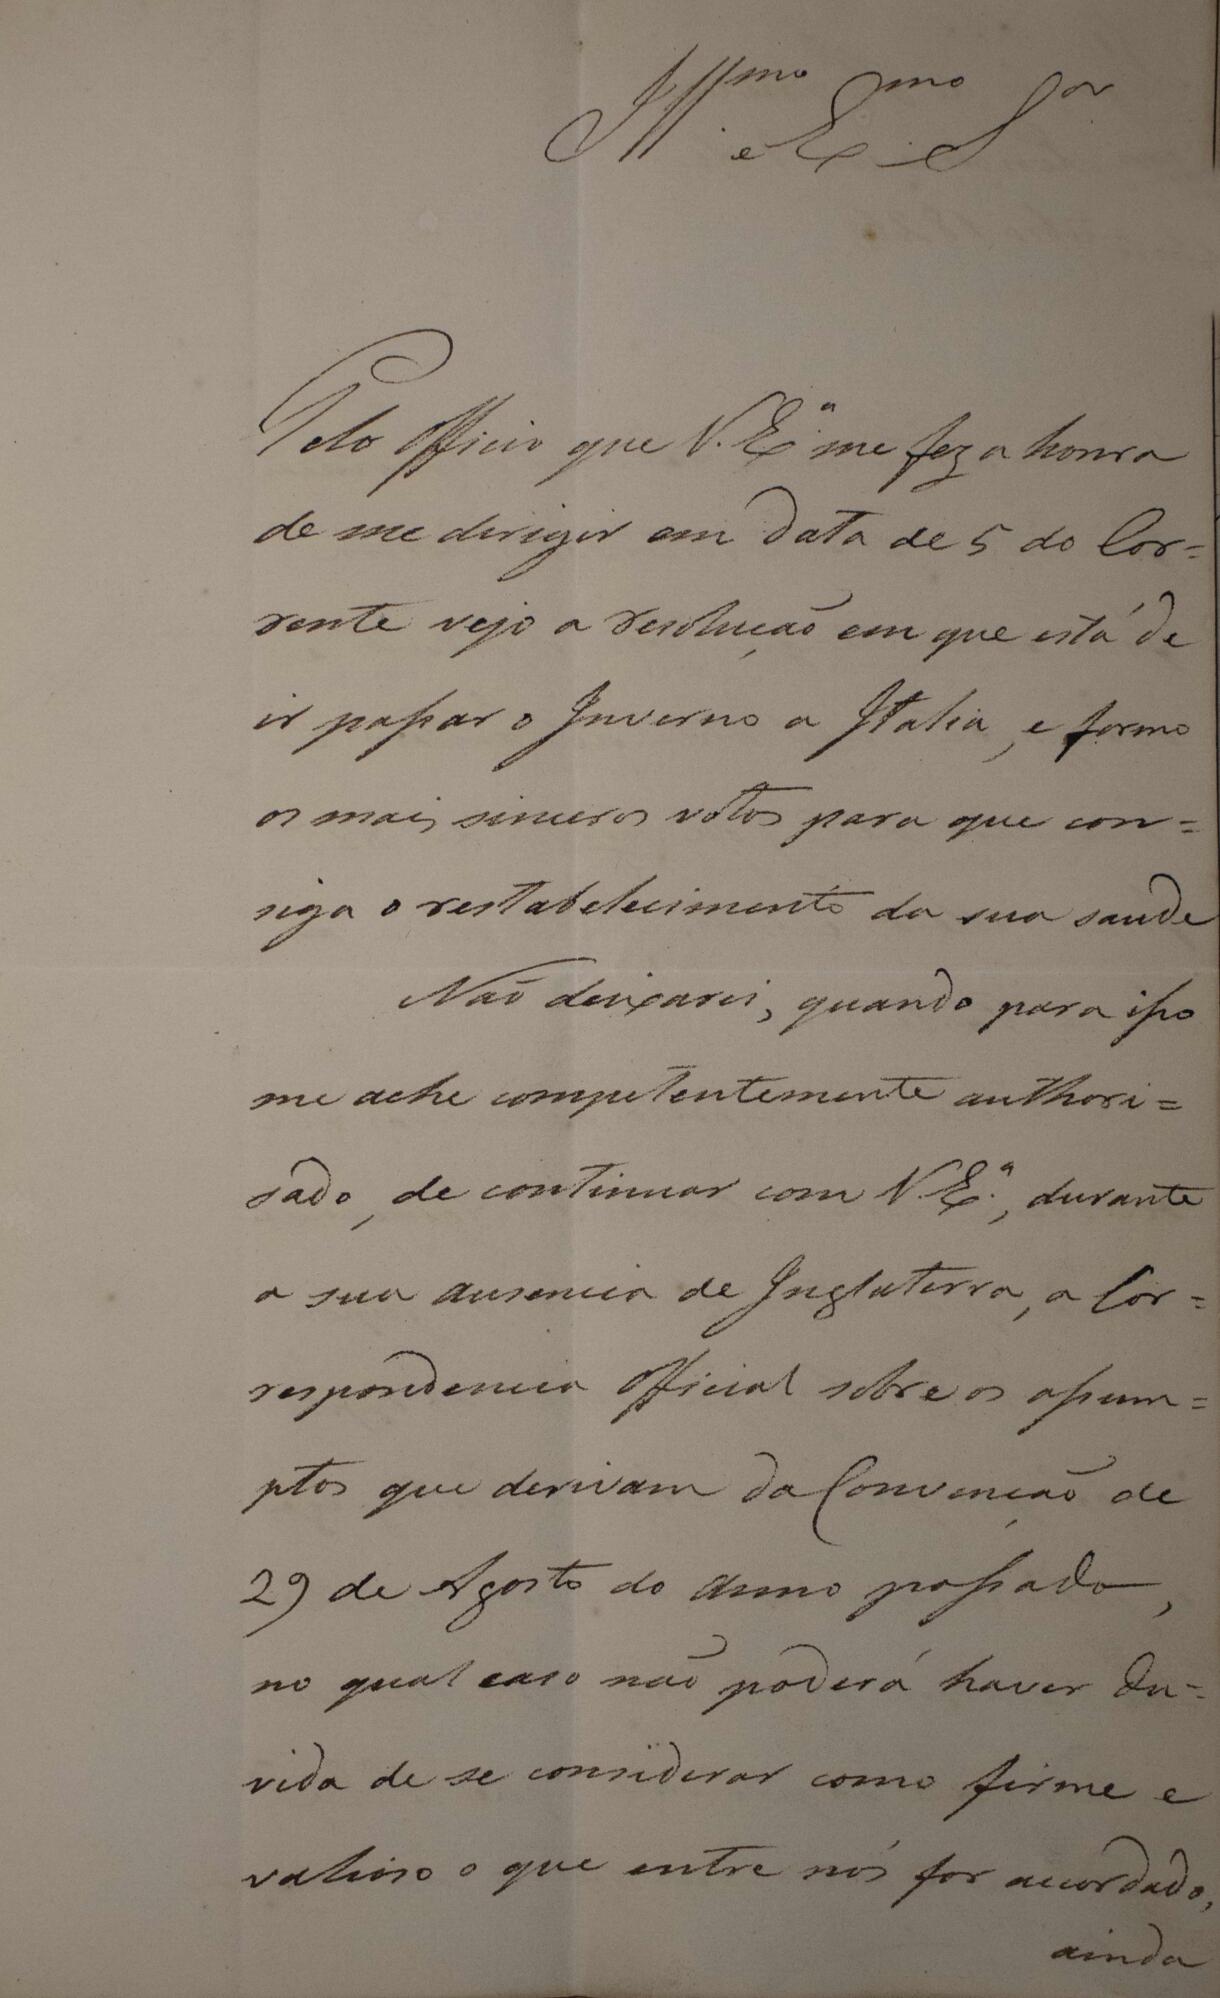 Ill.mo e Ex.mo S.or
Pelo Officio que V. Ex.a me fez a honra
de me dirigir em data de 5 do Cor=
rente vejo a resolução em que está de
ir passar o Inverno a Italia, e formo
os mais sinceros votos para que con=
siga o restabelecimento da sua saude
Não deixarei, quando para isso
me ache competentemente authori=
sado, de continuar com V. Ex.a, durante
a sua ausencia de Inglaterra, a Cor=
respondencia Official sobre os assum=
ptos que derivam da Convenção de
29 de Agosto do anno passado,
no qual caso não poderá haver du=
vida de se considerar como firme e
valioso o que entre nós for accordado,
ainda